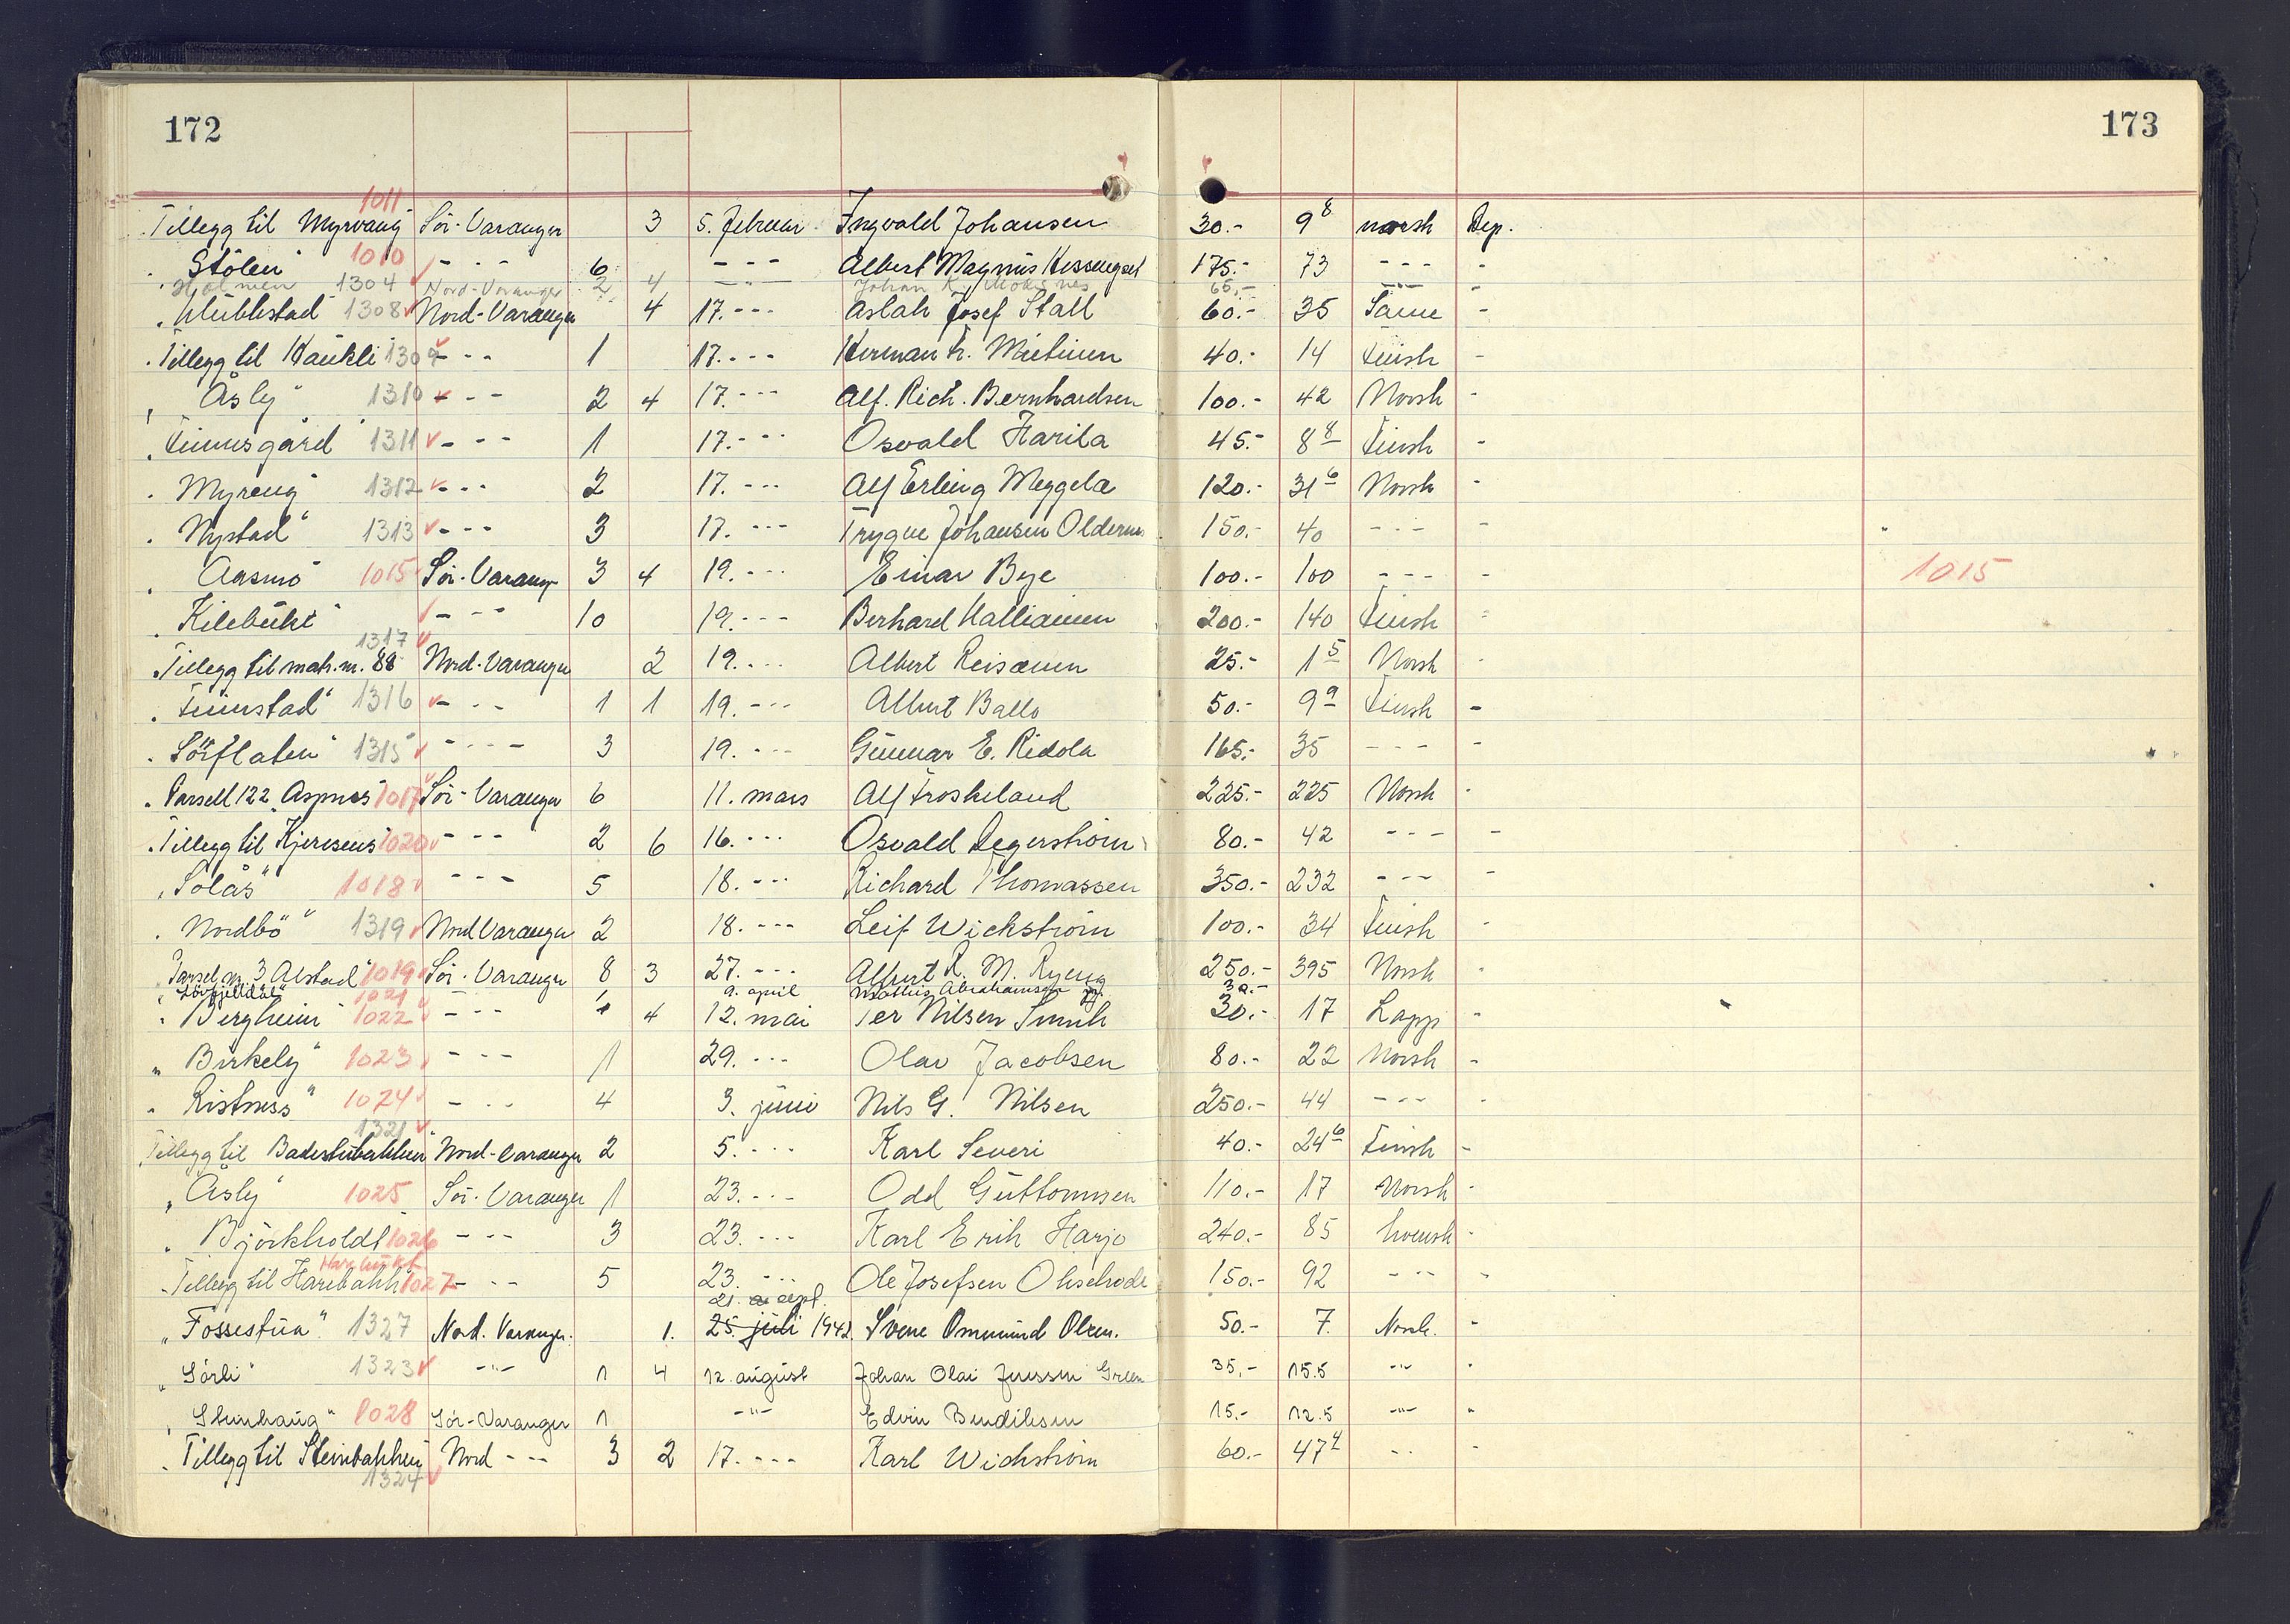 172
173
1011
Tillegg til Myrvang Sör-Varanger 3 5. Februar Ingvald Johansen 30.- 9 8 norsk Dep.
" Stölen" 1010 - - - 6 - - - Albert Magnus Hessengset 175.- 73 - - - -
" Holmen 1304 Nord-Varanger 2 4 - " - Johan K. Moksnes 65.- - " - -
" Klubbstad" 1308 Nord-Varanger 4 17. - - - Aslak Josef Stall 60.- 35 Same -
" Tillegg til Haukli 1309 - - - 1 17. - - - Herman Fr. Mietinen 40.- 14 Finsk -
" Åsly" 1310 - - - 2 4 17. - - - Alf. Rich. Bernhardsen 100.- 42 Norsk -
" Finnsgård" 1311 - - - 1 17. - - - Osvald Harila 45.- 8 8 Finsk -
" Myreng" 1312 - - - 2 17. - - - Alf Erling Meggela 120.- 31 6 Norsk -
" Nystad" 1313 - - - 3 17. - - - Trygve Johansen 150.- 40 - - - -
" Aasmo" 1015 Sör-Varanger 3 4 19. - - - Einar Bye 100.- 100 - - - - 1015
" Kilebukt" - - - 10 19. - - - Berhard Halliainen 200.- 140 Finsk -
1317
" Tillegg til matr.nr. 88 Nord-Varanger 2 19. - - - Albert Reisænen 25.- 1 5 Norsk -
" Finnstad" 1316 - - - 1 1 19. - - - Albert Ballo 50.- 9 9 Finsk -
" Sörflaten" 1315 - - - 3 19. - - - Gunnar E. Ridola 165.- 35 - - - -
" Parsell 122 "Aspnes" 1017 Sör-Varanger 6 11. mars Alf Froskeland 225.- 225 Norsk -
" Tillegg til Kjerisnes 1020 - - - 2 6 16. - - - Osvald Degerström 80.- 42 - - - -
" Solås" 1018 - - - 5 18. - - - Richard Thomassen 350.- 232 - - - -
" Nordbö" 1319 Nord Varanger 2 18. - - - Leif Wickström 100.- 34 Finsk -
" Parsel nr. 3 Alstad" 1019 Sör-Varanger 8 3 27. - - - Albert R. M. Ryeng 250.- 395 Norsk -
" Lövfjelldal" 1021 1 9. april Mattis Abrahamsen 30.-
" Bergheim" 1022 - - - 4 12. mai Per Nilsen Smuk 30.- 17 Lapp -
" Birkely" 1023 - - - 1 29. - - - Olav Jacobsen 80.- 22 Norsk -
" Ristness" 1024 - - - 4 3. juni Nils G. Nilsen 250.- 44 - - - -
1321
Tillegg til Badestubakken Nord-Varanger 2 5. - - - Karl Severi 40.- 24 6 Finsk -
" Åsly" 1025 Sör-Varanger 1 23. - - - Odd Guttormsen 110.- 17 Norsk -
" Björkholdt" 1026 - - - 3 23. - - - Karl Erik Harjo 240.- 85 kvensk -
Harebukt
" Tillegg til Harebakk 1027 - - - 5 23. - - - Ole Josefsen 150.- 92 - - - -
21. sept.
" Fossestua" 1327 Nord. Varanger. 1. 25. juli 1942 Svene Ommund Olsen. 50.- 7. Norsk. -
" Sörli" 1323 - " - 1 4 12. august Johan Olai Jenssen Green 35,- 15.5 - " - "
" Steinhaug" 1028 Sör-Varanger 1 - " - Edvin Bendiksen 15.- 12.5 - " - "
" Tillegg til Steinbakken Nord - - - 3 2 17. - - - Karl Wickström 60.- 47 4 - - -
1324